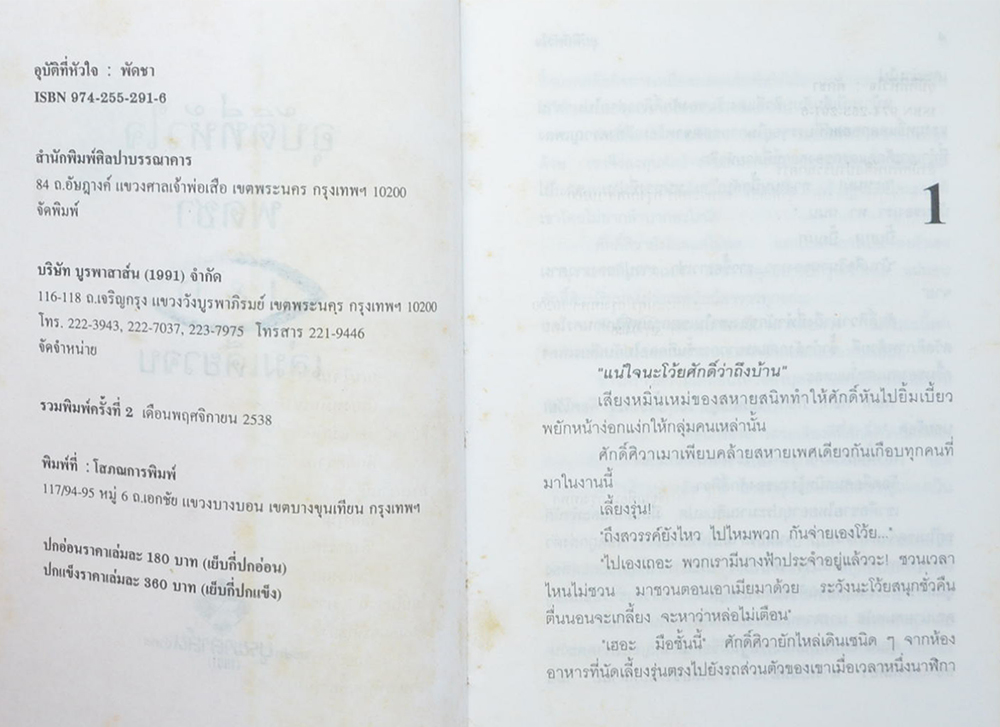 อุบัติที่หัวใจ : พัดชา
ISBN 974-255-291-6
สำนักพิมพ์ศิลปาบรรณาคาร
84 ถ.อัษฎางค์ แขวงศาลเจ้าพ่อเสือ เขตพระนคร กรุงเทพฯ 10200
จัดพิมพ์
บริษัท บูรพาสาส์น (1991) จำกัด
116-118 ถ.เจริญกรุง แขวงวังบูรพาภิรมย์ เขตพระนคร กรุงเทพฯ 10200
โทร. 222-3943, 222-7037, 223-7975 โทรสาร 221-9446
จัดจำหน่าย
รวมพิมพ์ครั้งที่ 2 เดือนพฤศจิกายน 2538
พิมพ์ที่ : โสภณการพิมพ์
117/94-95 หมู่ 6 ถ.เอกชัย แขวงบางบอน เขตบางขุนเทียน กรุงเทพฯ
ปกอ่อนราคาเล่มละ 180 บาท (เย็บกี่ปกอ่อน)
ปกแข็งราคาเล่มละ 360 บาท (เย็บกี่ปกแข็ง)
1
"แน่ใจนะโว้ยศักดิ์ว่าถึงบ้าน"
เสียงหมิ่นเหม่ของสหายสนิททำให้ศักดิ์หันไปยิ้มเบี้ยว
พยักหน้าง่อกแง่กให้กลุ่มคนเหล่านั้น
ศักดิ์ศิวาเมาเพียบคล้ายสหายเพศเดียวกันเกือบทุกคนที่
มาในงานนี้
เลี้ยงรุ่น!
"ถึงสวรรค์ยังไหว ไปไหมพวก กันจ่ายเองโว้ย..."
"ไปเองเถอะ พวกเรามีนางฟ้าประจำอยู่แล้ววะ! ชวนเวลา
ไหนไม่ชวน มาชวนตอนเอาเมียมาด้วย ระวังนะโว้ยสนุกชั่วคืน
ตื่นนอนจะเกลี้ยง จะหาว่าหล่อไม่เตือน"
"เฮอะ มือชั้นนี้" ศักดิ์ศิวายักไหล่เดินเซนิด ๆ จากห้อง
อาหารที่นัดเลี้ยงรุ่นตรงไปยังรถส่วนตัวของเขาเมื่อเวลาหนึ่งนาฬิกา